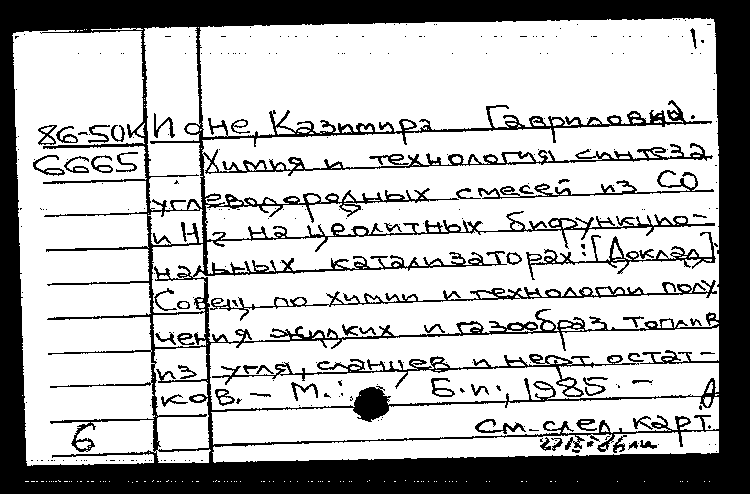 1.
86-50К Ионе, Казимира Гавриловна.
6665 Химия и технология синтеза
углеводородных смесей из СО
и Н2 на цеолитных бифункцио-
нальных катализаторах: [Доклад].
Совещ. по химии и технологии полу-
чения жидких и газообраз. топлив
из угля, сланцев и нефт. остат-
ков. – М.: Б.и., 1985. –
6 см. след. карт.